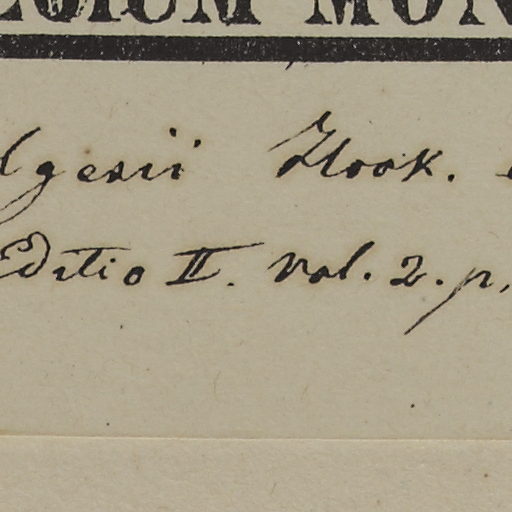 EGIUM MON
lgerii Hook.
Editio II. vol. 2. p.